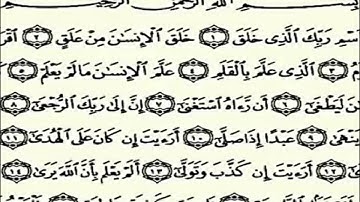 بِسْمِ ٱللَّهِ ٱلرَّحْمَٰنِ ٱلرَّحِيمِ
ٱسْمِ رَبِّكَ ٱلَّذِى خَلَقَ ١ خَلَقَ ٱلْإِنسَٰنَ مِنْ عَلَقٍ ٢ ٱقْرَ
مُ ٣ ٱلَّذِى عَلَّمَ بِٱلْقَلَمِ ٤ عَلَّمَ ٱلْإِنسَٰنَ مَا لَمْ يَعْلَمْ ٥
نَ لَيَطْغَىٰٓ ٦ أَن رَّءَاهُ ٱسْتَغْنَىٰٓ ٧ إِنَّ إِلَىٰ رَبِّكَ ٱلرُّجْعَىٰٓ ٨
يَنْهَىٰ ٩ عَبْدًا إِذَا صَلَّىٰٓ ١٠ أَرَءَيْتَ إِن كَانَ عَلَى ٱلْهُدَىٰٓ ١١
١٢ أَرَءَيْتَ إِن كَذَّبَ وَتَوَلَّىٰٓ ١٣ أَلَمْ يَعْلَم بِأَنَّ ٱللَّهَ يَرَىٰ ١٤